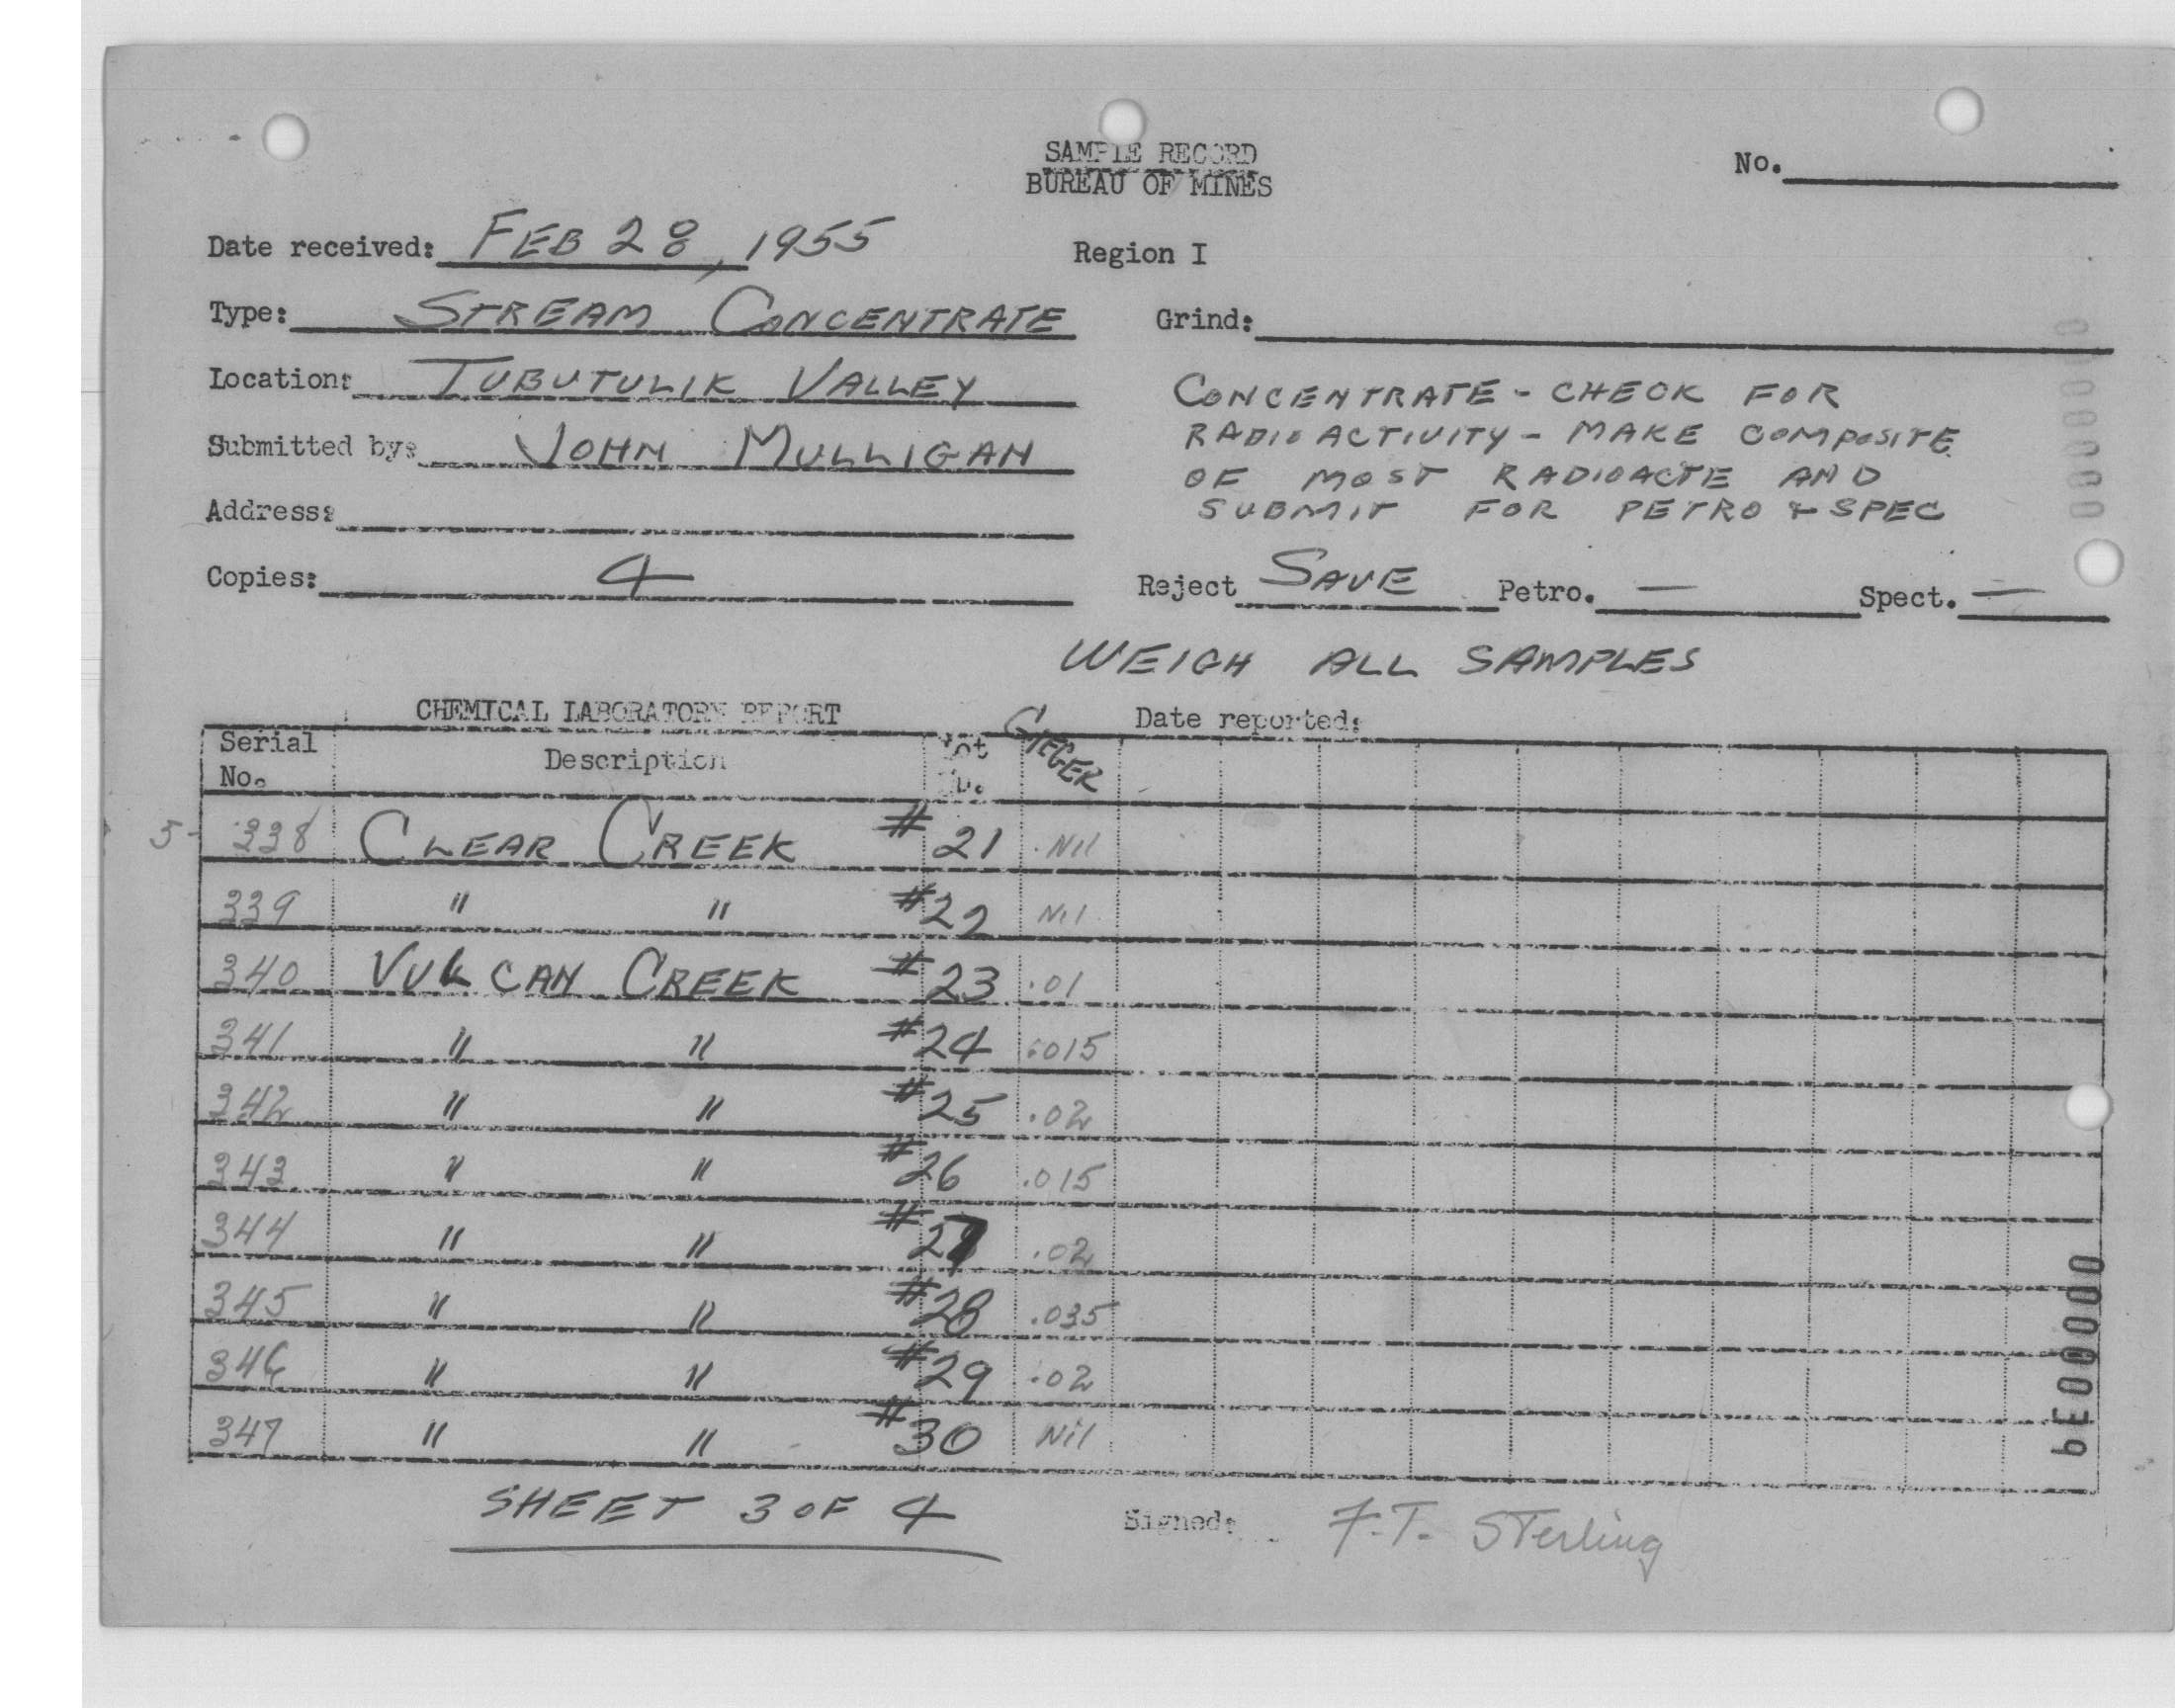 SAMPLE RECORD
BUREAU OF MINES
No.
Date received: FEB 28, 1955
Region I
Type: STREAM CONCENTRATE
Grind:
Location: TUBUTULIK VALLEY
CONCENTRATE - CHECK FOR
RADIOACTIVITY - MAKE COMPOSITE
Submitted by: JOHN MULLIGAN
OF MOST RADIOACTE AND
SUBMIT FOR PETRO & SPEC
Address:
Copies: 4
Reject SAVE Petro. — Spect. —
WEIGH ALL SAMPLES
CHEMICAL LABORATORY REPORT
Date reported:
Serial No. Description Lot No. GIEGER
5- 338 CLEAR CREEK #21 Nil
339 " " #22 Nil
340 VULCAN CREEK #23 .01
341 " " #24 .015
342 " " #25 .02
343 " " #26 .015
344 " " #27 .02
345 " " #28 .035
346 " " #29 .02
347 " " #30 Nil
SHEET 3 OF 4
Signed: F.T. Sterling